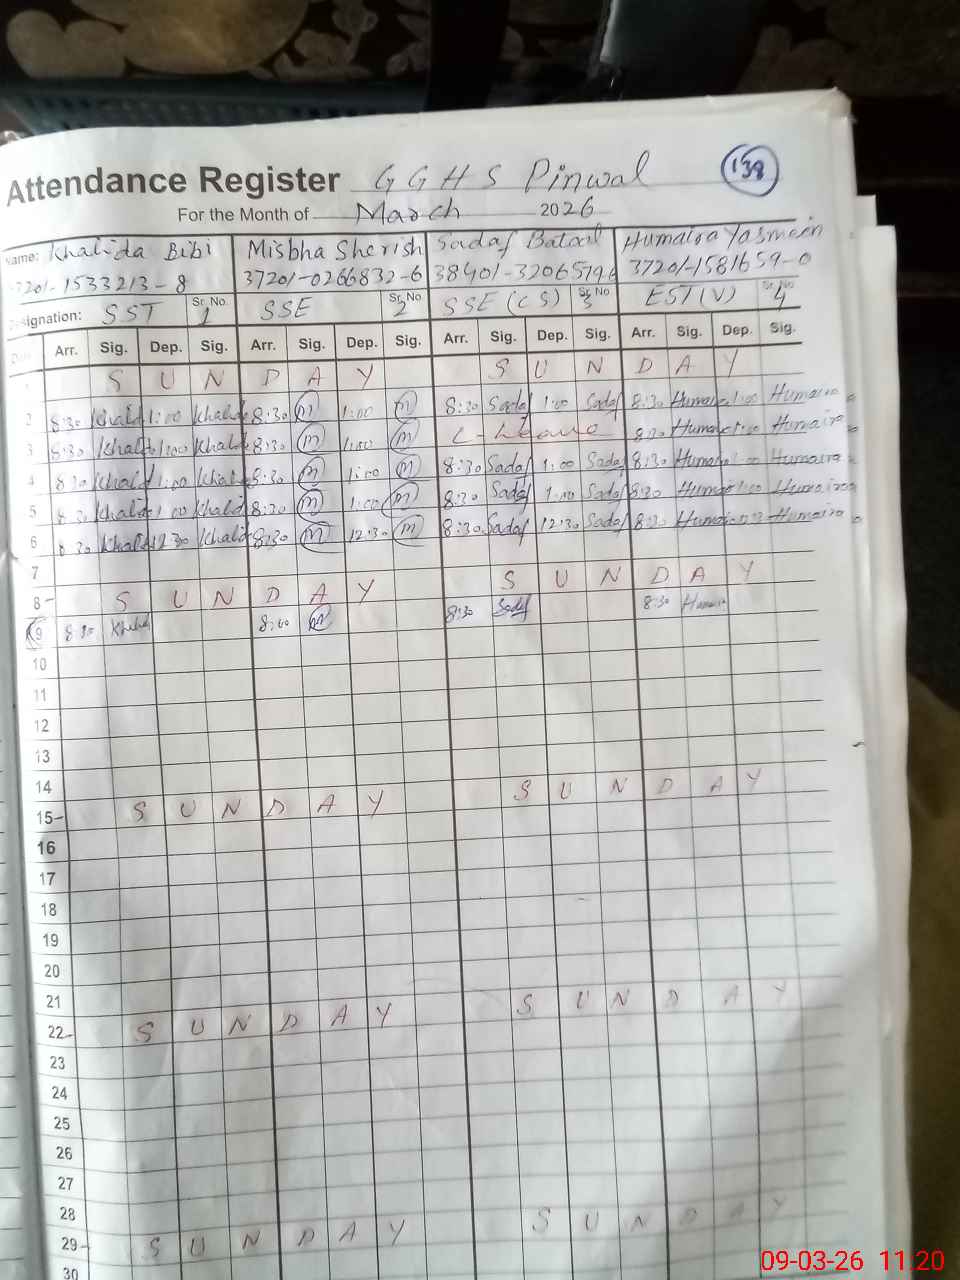 138
Attendance Register GGHS Pinwal
For the Month of March 2026
Name: Khalida Bibi Misbha Sherish Sadaf Batool Humaira Yasmeen
1533213-8 37201-0266832-6 38401-3206579 37201-1581659-0
Designation: SST Sr. No. 1 SSE Sr. No 2 SSE (CS) Sr. No 3 EST (V) Sr. No 4
Arr. Sig. Dep. Sig. Arr. Sig. Dep. Sig. Arr. Sig. Dep. Sig. Arr. Sig. Dep. Sig.
1 S U N D A Y S U N D A Y
2 8:30 Khalid 1:00 Khalid 8:30 m 1:00 m 8:30 Sadaf 1:00 Sadaf 8:30 Humaira 1:00 Humaira
3 8:30 Khalid 1:00 Khalid 8:30 m 1:00 m C-Leave 8:30 Humaira 1:00 Humaira
4 8:30 Khalid 1:00 Khalid 8:30 m 1:00 m 8:30 Sadaf 1:00 Sadaf 8:30 Humaira 1:00 Humaira
5 8:30 Khalid 1:00 Khalid 8:30 m 1:00 m 8:30 Sadaf 1:00 Sadaf 8:30 Humaira 1:00 Humaira
6 8:30 Khalid 12:30 Khalid 8:30 m 12:30 m 8:30 Sadaf 12:30 Sadaf 8:30 Humaira Humaira
7
8 S U N D A Y S U N D A Y
9 m 8:30 Sadaf 8:30 Humaira
10
11
12
13
14
15 S U N D A Y S U N D A Y
16
17
18
19
20
21
22 S U N D A Y S U N D A Y
23
24
25
26
27
28
29 S U N D A Y S U N D A Y
30
09-03-26 11.20